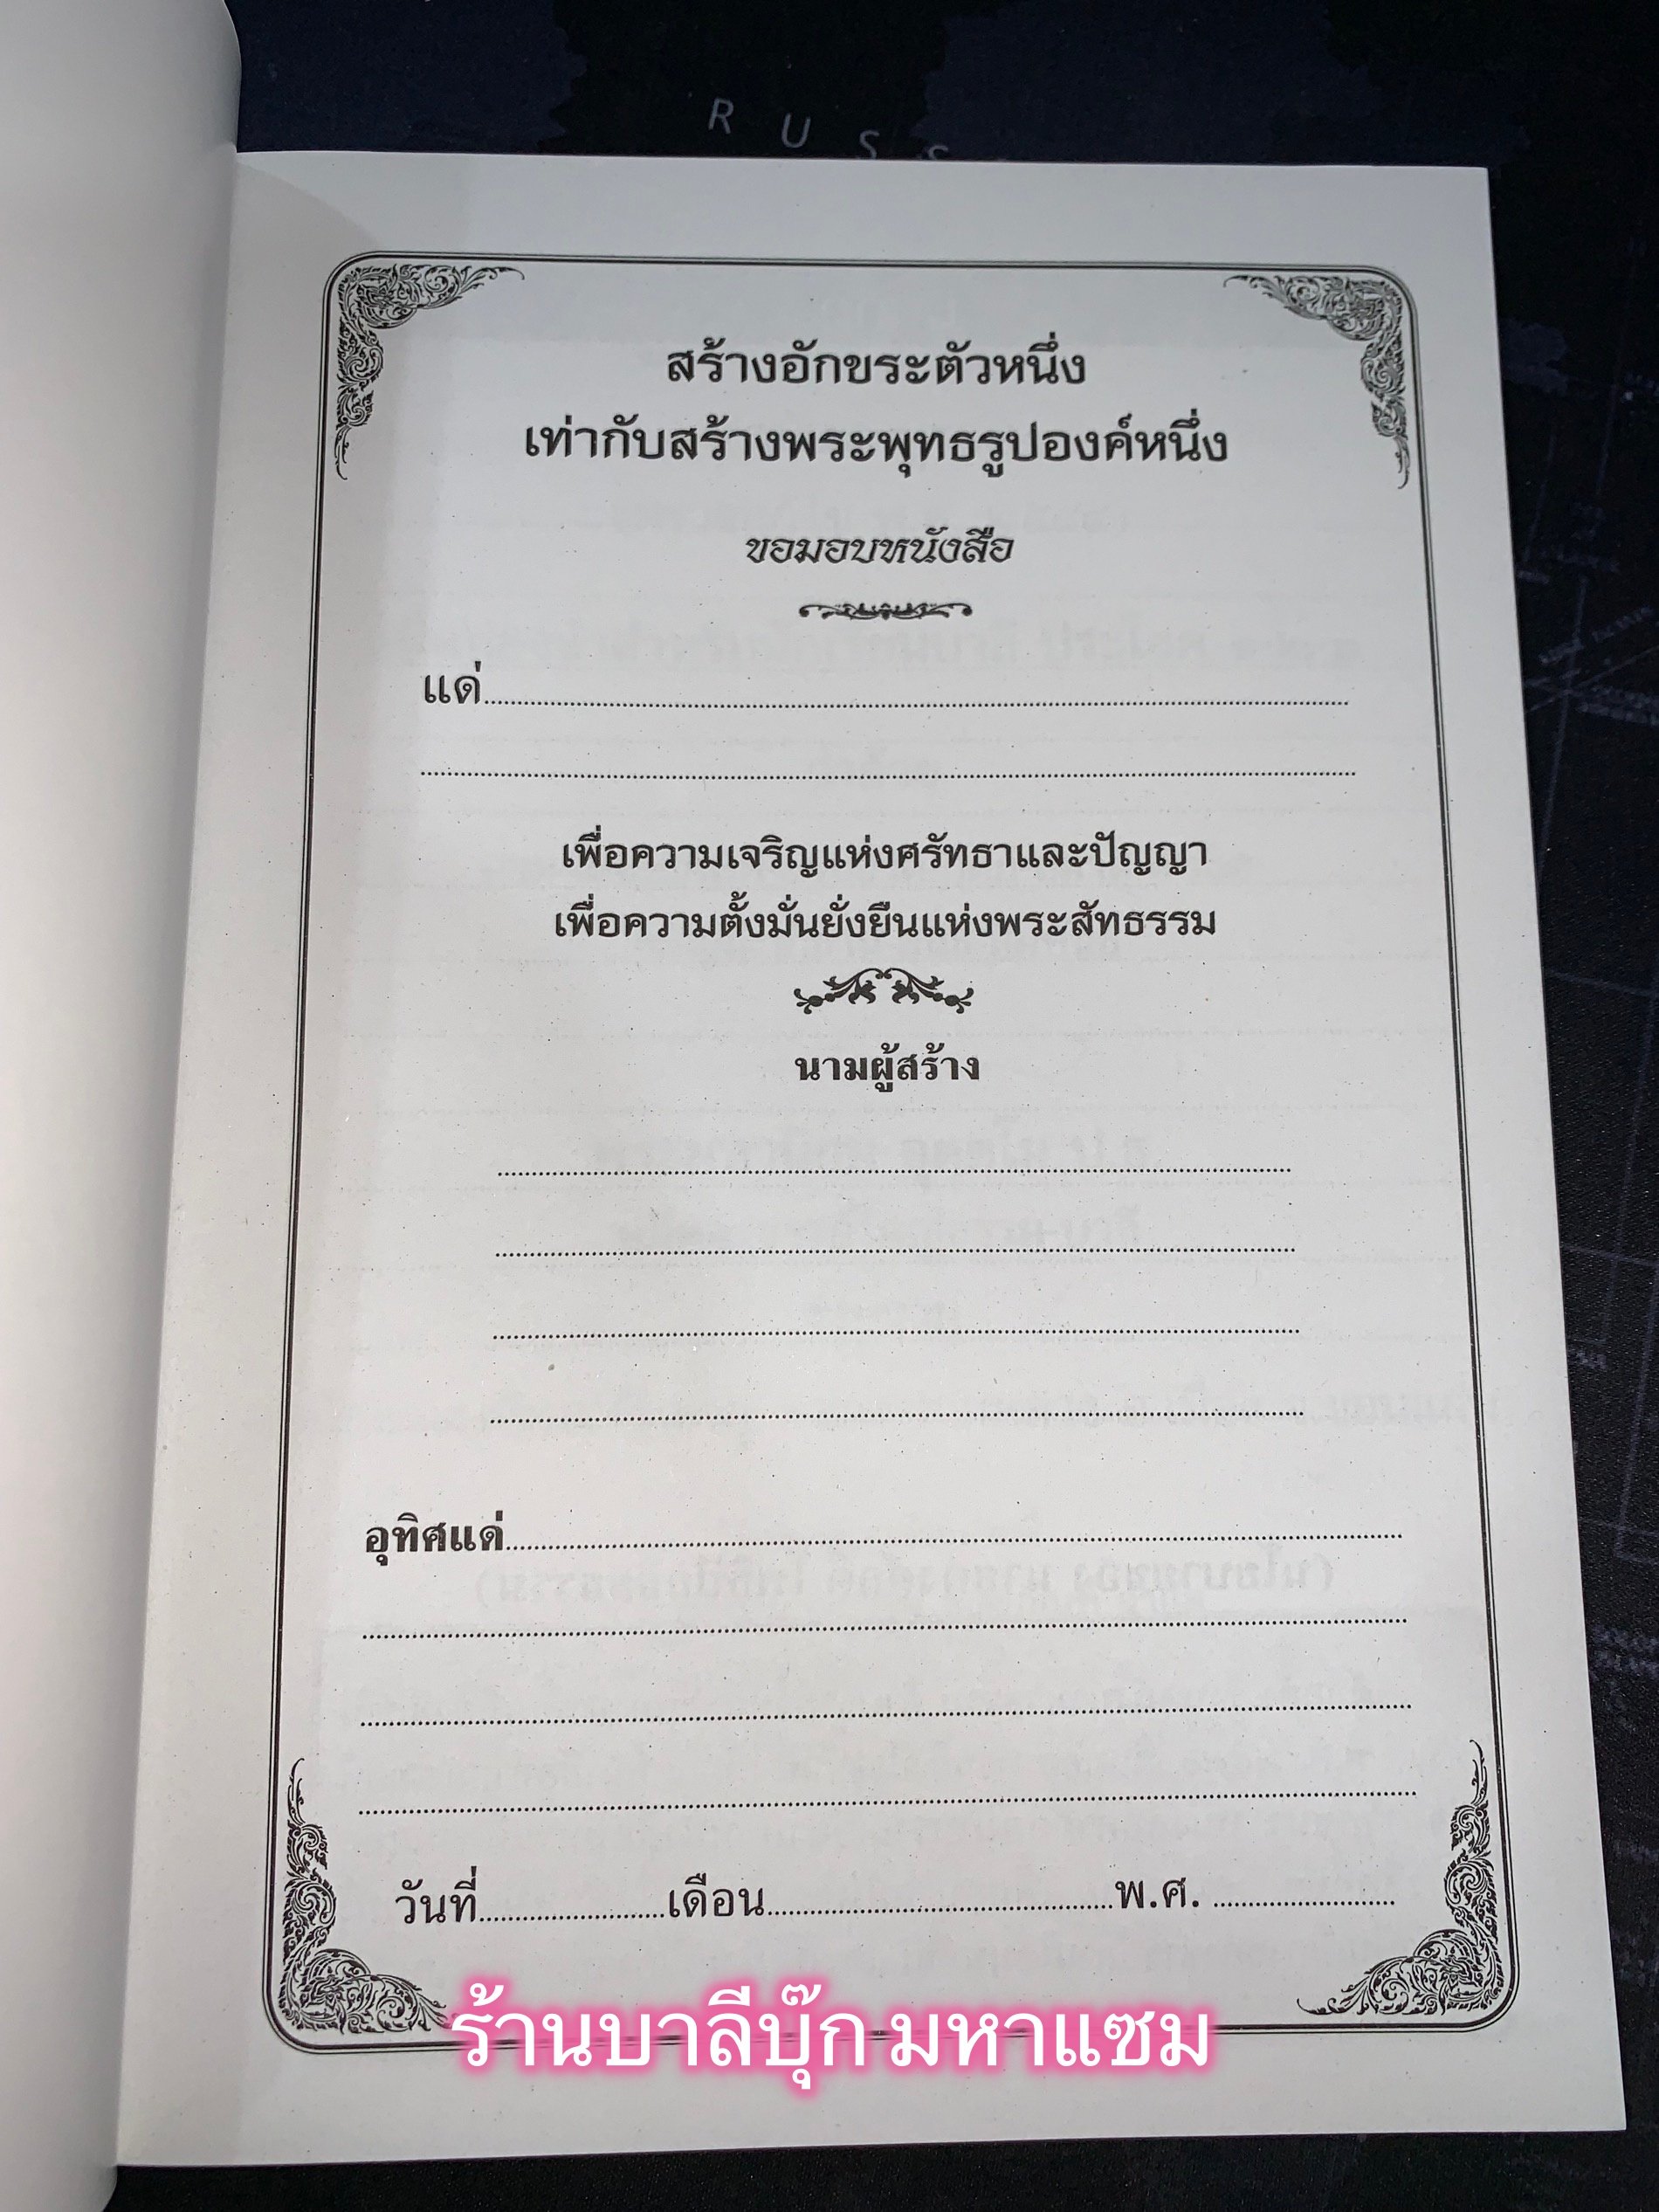 R U S S
สร้างอักขระตัวหนึ่ง
เท่ากับสร้างพระพุทธรูปองค์หนึ่ง
ขอมอบหนังสือ
แด่
เพื่อความเจริญแห่งศรัทธาและปัญญา
เพื่อความตั้งมั่นยั่งยืนแห่งพระสัทธรรม
นามผู้สร้าง
อุทิศแด่
วันที่ เดือน พ.ศ.
ร้านบาลีบุ๊ก มหาแซม